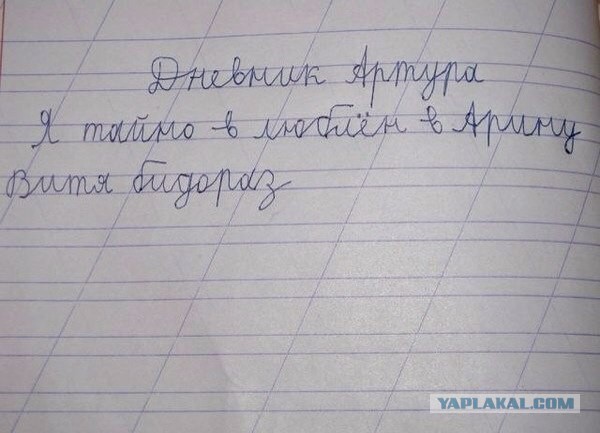 Дневник Артура
Я тайно в люблён в Арину
Витя бидораз
YAPLAKAL.COM